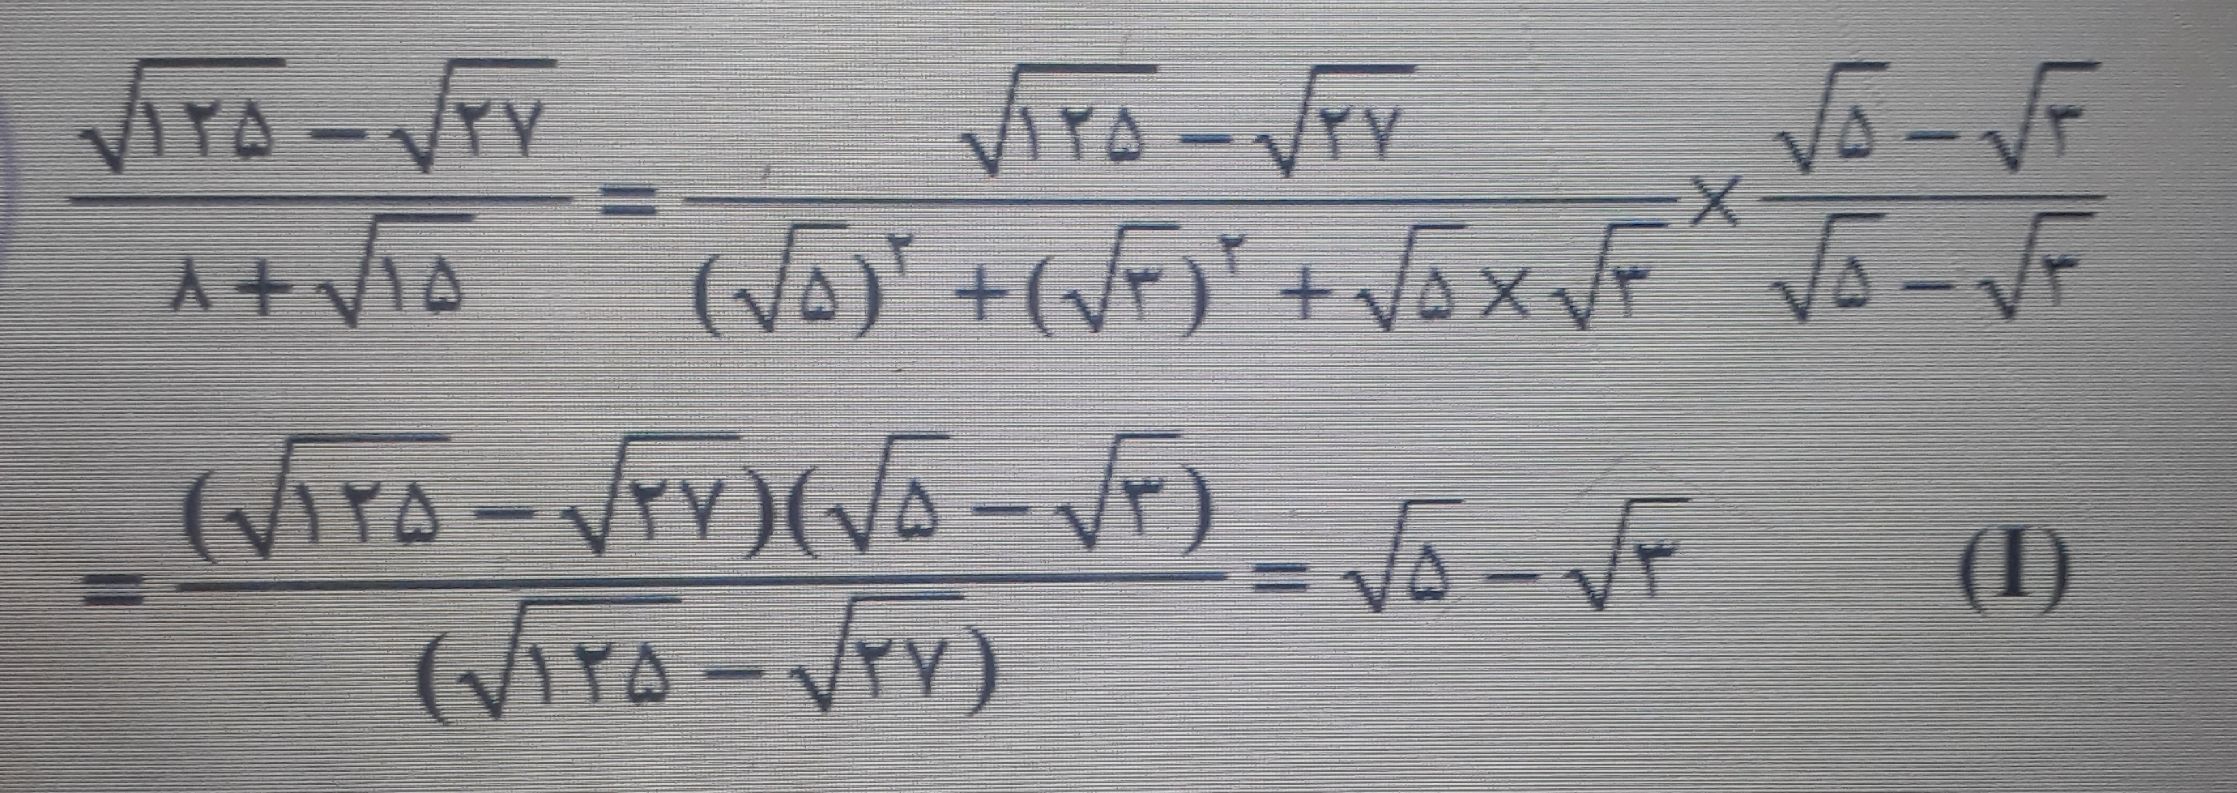 (√۱۲۵ − √۲۷)/(۸ + √۱۵) = (√۱۲۵ − √۲۷)/((√۵)^۲ + (√۳)^۲ + √۵ × √۳) × (√۵ − √۳)/(√۵ − √۳)
= ((√۱۲۵ − √۲۷)(√۵ − √۳))/((√۱۲۵ − √۲۷)) = √۵ − √۳ (I)